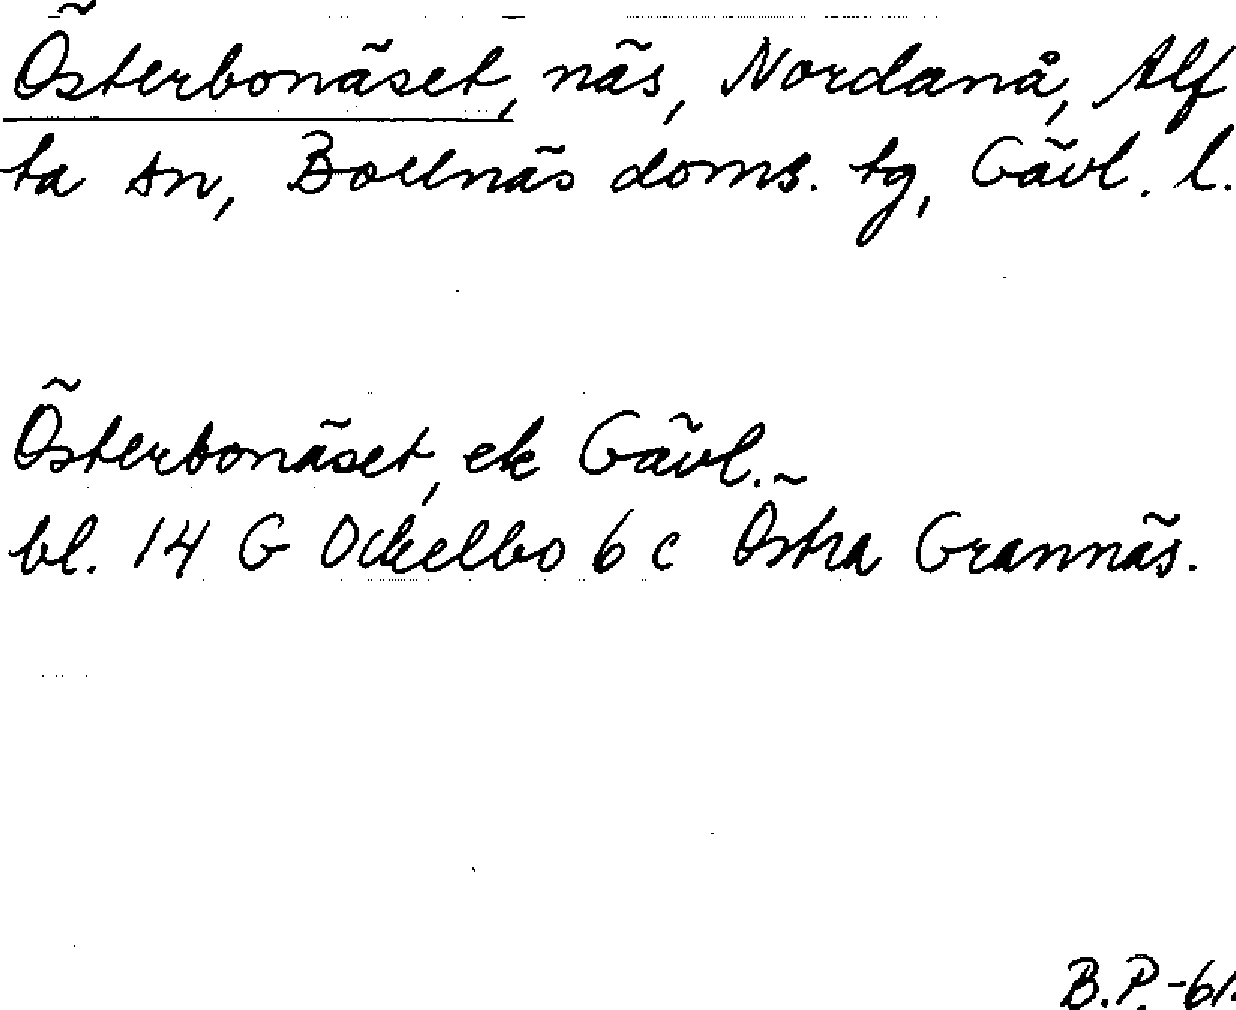 Österbonäset, näs, Nordanå, Alf
ta sn, Bollnäs doms. tg, Gävl. l.
Österbonäset, ek Gävl.
bl. 14 G Ockelbo 6 c Östra Grannäs.
B.P.-61.